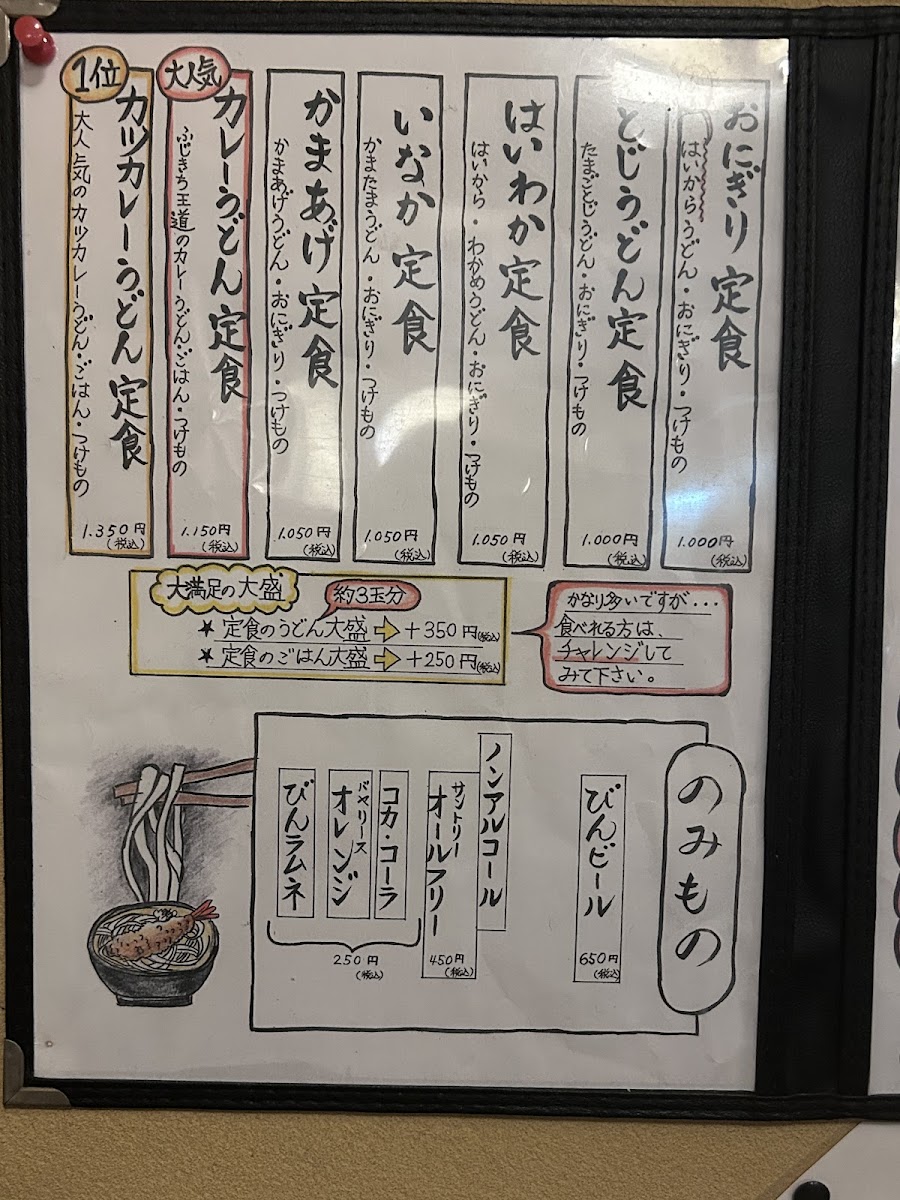 おにぎり定食
はいからうどん・おにぎり・つけもの
1.000円
(税込)
とじうどん定食
たまごとじうどん・おにぎり・つけもの
1.000円
(税込)
はいわか定食
はいから・わかめうどん・おにぎり・つけもの
1.050円
(税込)
いなか定食
かまたまうどん・おにぎり・つけもの
1.050円
(税込)
かまあげ定食
かまあげうどん・おにぎり・つけもの
1.050円
(税込)
大人気
カレーうどん定食
ふじきち王道のカレーうどん・ごはん・つけもの
1.150円
(税込)
1位
カツカレーうどん定食
大人気のカツカレーうどん・ごはん・つけもの
1.350円
(税込)
大満足の大盛
約3玉分
★ 定食のうどん大盛⇨+350円(税込)
★ 定食のごはん大盛⇨+250円(税込)
かなり多いですが...
食べれる方は、
チャレンジして
みて下さい。
のみもの
びんビール
650円
(税込)
ノンアルコール
サントリー
オールフリー
450円
(税込)
コカ・コーラ
バヤリース
オレンジ
びんラムネ
250円
(税込)